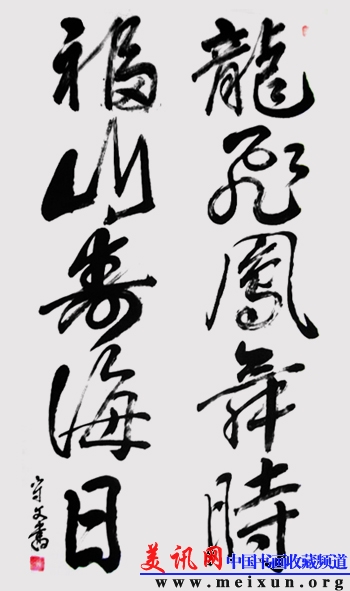 龍飛鳳舞時
福山壽海日
守文書
美讯网
中国书画收藏频道
www.meixun.org